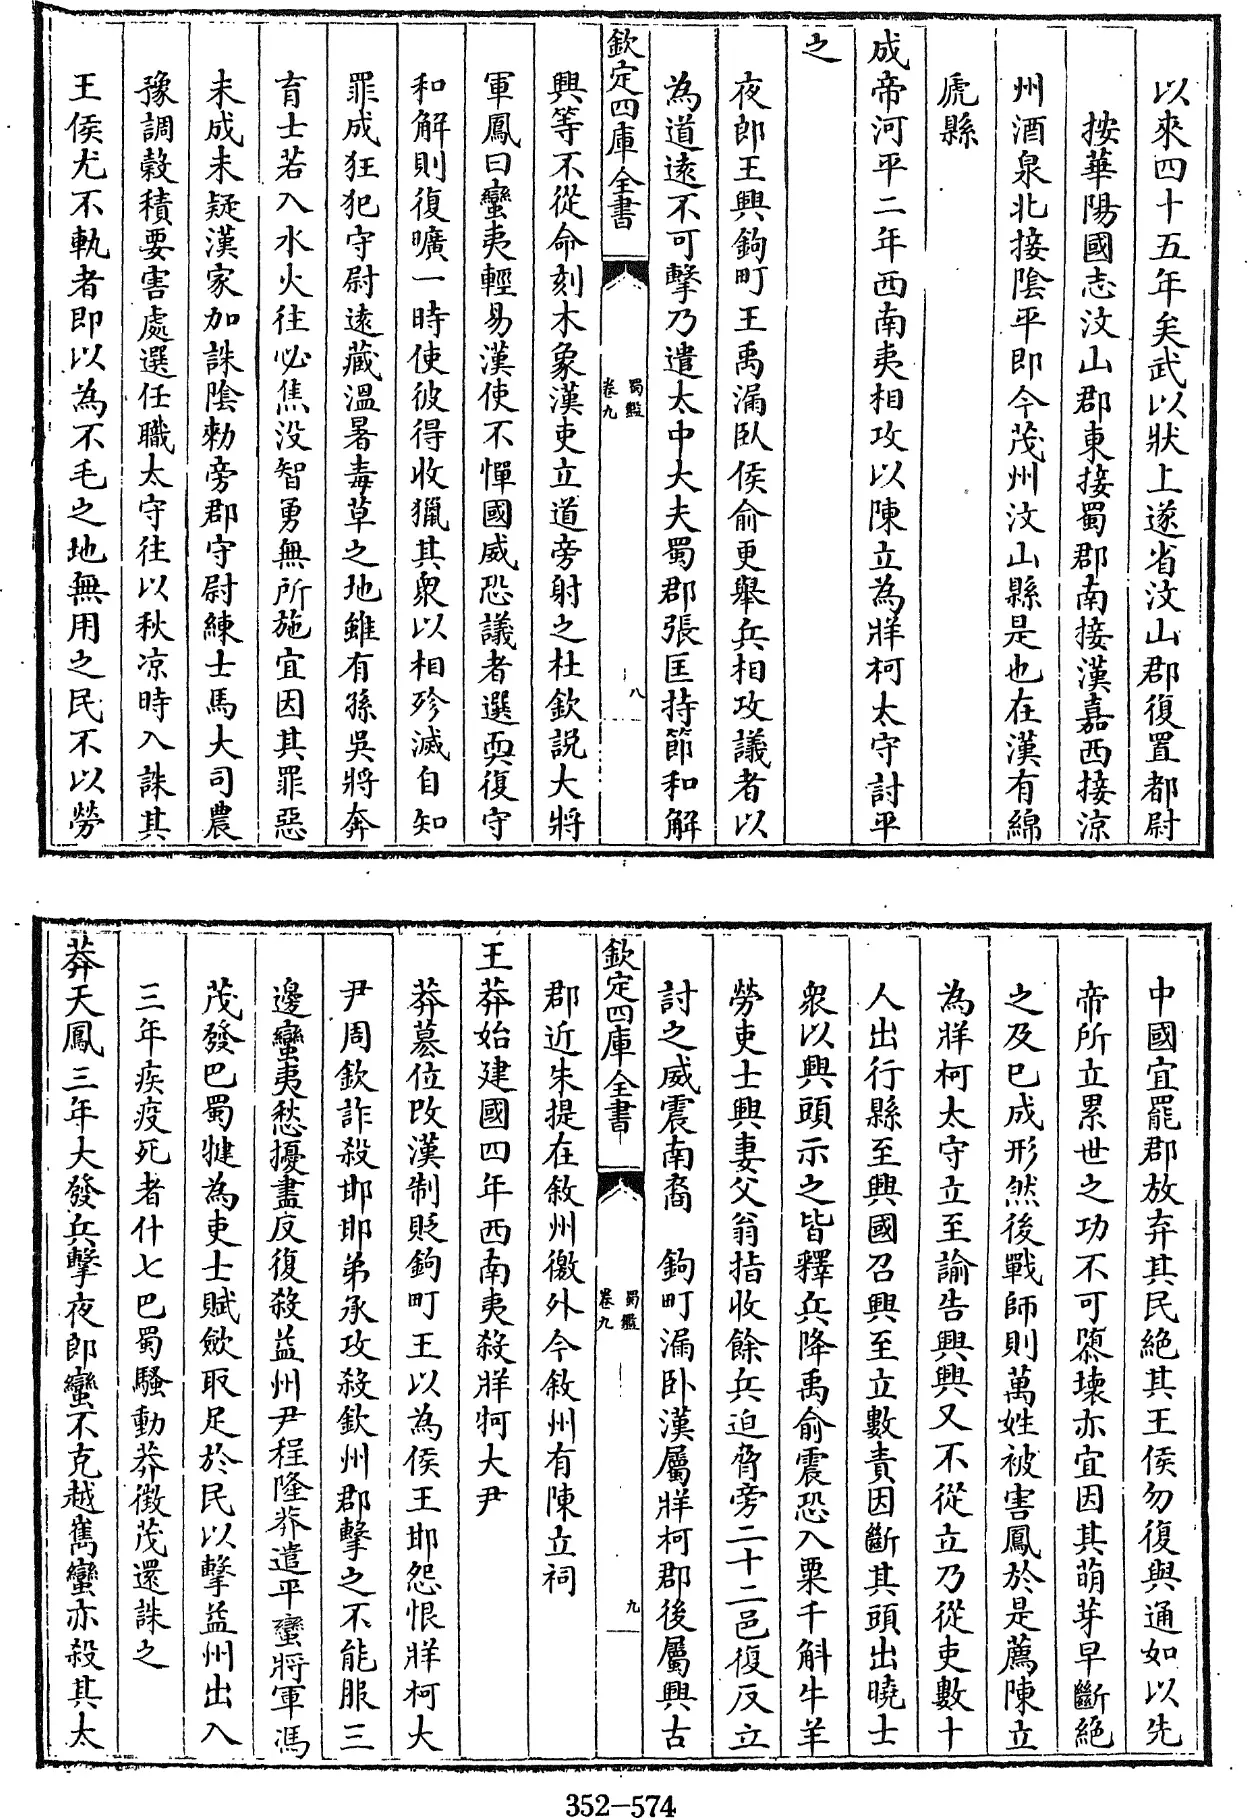 以來四十五年矣武以狀上遂省汶山郡復置都尉
按華陽國志汶山郡東接蜀郡南接漢嘉西接涼
州酒泉北接陰平即今茂州汶山縣是也在漢有綿
虒縣
成帝河平二年西南夷相攻以陳立為牂柯太守討平
之
夜郎王興鉤町王禹漏臥侯俞更舉兵相攻議者以
為道遠不可擊乃遣太中大夫蜀郡張匡持節和解
欽定四庫全書
蜀鑑
卷九
八
興等不從命刻木象漢吏立道旁射之杜欽說大將
軍鳳曰蠻夷輕易漢使不憚國威恐議者選耎復守
和解則復曠一時使彼得收獵其衆以相殄滅自知
罪成狂犯守尉遠藏溫暑毒草之地雖有孫吳將賁
育士若入水火往必焦没智勇無所施宜因其罪惡
未成未疑漢家加誅陰勅旁郡守尉練士馬大司農
豫調穀積要害處選任職太守往以秋凉時入誅其
王侯尤不軌者即以為不毛之地無用之民不以勞
中國宜罷郡放弃其民絶其王侯勿復與通如以先
帝所立累世之功不可隳壊亦宜因其萌芽早斷絶
之及已成形然後戰師則萬姓被害鳳於是薦陳立
為牂柯太守立至諭告興興又不從立乃從吏數十
人出行縣至興國召興至立數責因斷其頭出曉士
衆以興頭示之皆釋兵降禹俞震恐入粟千斛牛羊
勞吏士興妻父翁指收餘兵迫脅旁二十二邑復反立
討之威震南裔　鉤町漏卧漢屬牂柯郡後屬興古
欽定四庫全書
蜀鑑
卷九
九
郡近朱提在敘州徼外今敘州有陳立祠
王莽始建國四年西南夷殺牂牁大尹
莽簒位改漢制貶鉤町王以為侯王邯怨恨牂柯大
尹周欽詐殺邯邯弟承攻殺欽州郡擊之不能服三
邊蠻夷愁擾盡反復殺益州尹程隆莽遣平蠻將軍馮
茂發巴蜀犍為吏士賦歛取足於民以擊益州出入
三年疾疫死者什七巴蜀騷動莽徵茂還誅之
莽天鳳三年大發兵擊夜郎蠻不克越嶲蠻亦殺其太
352-574